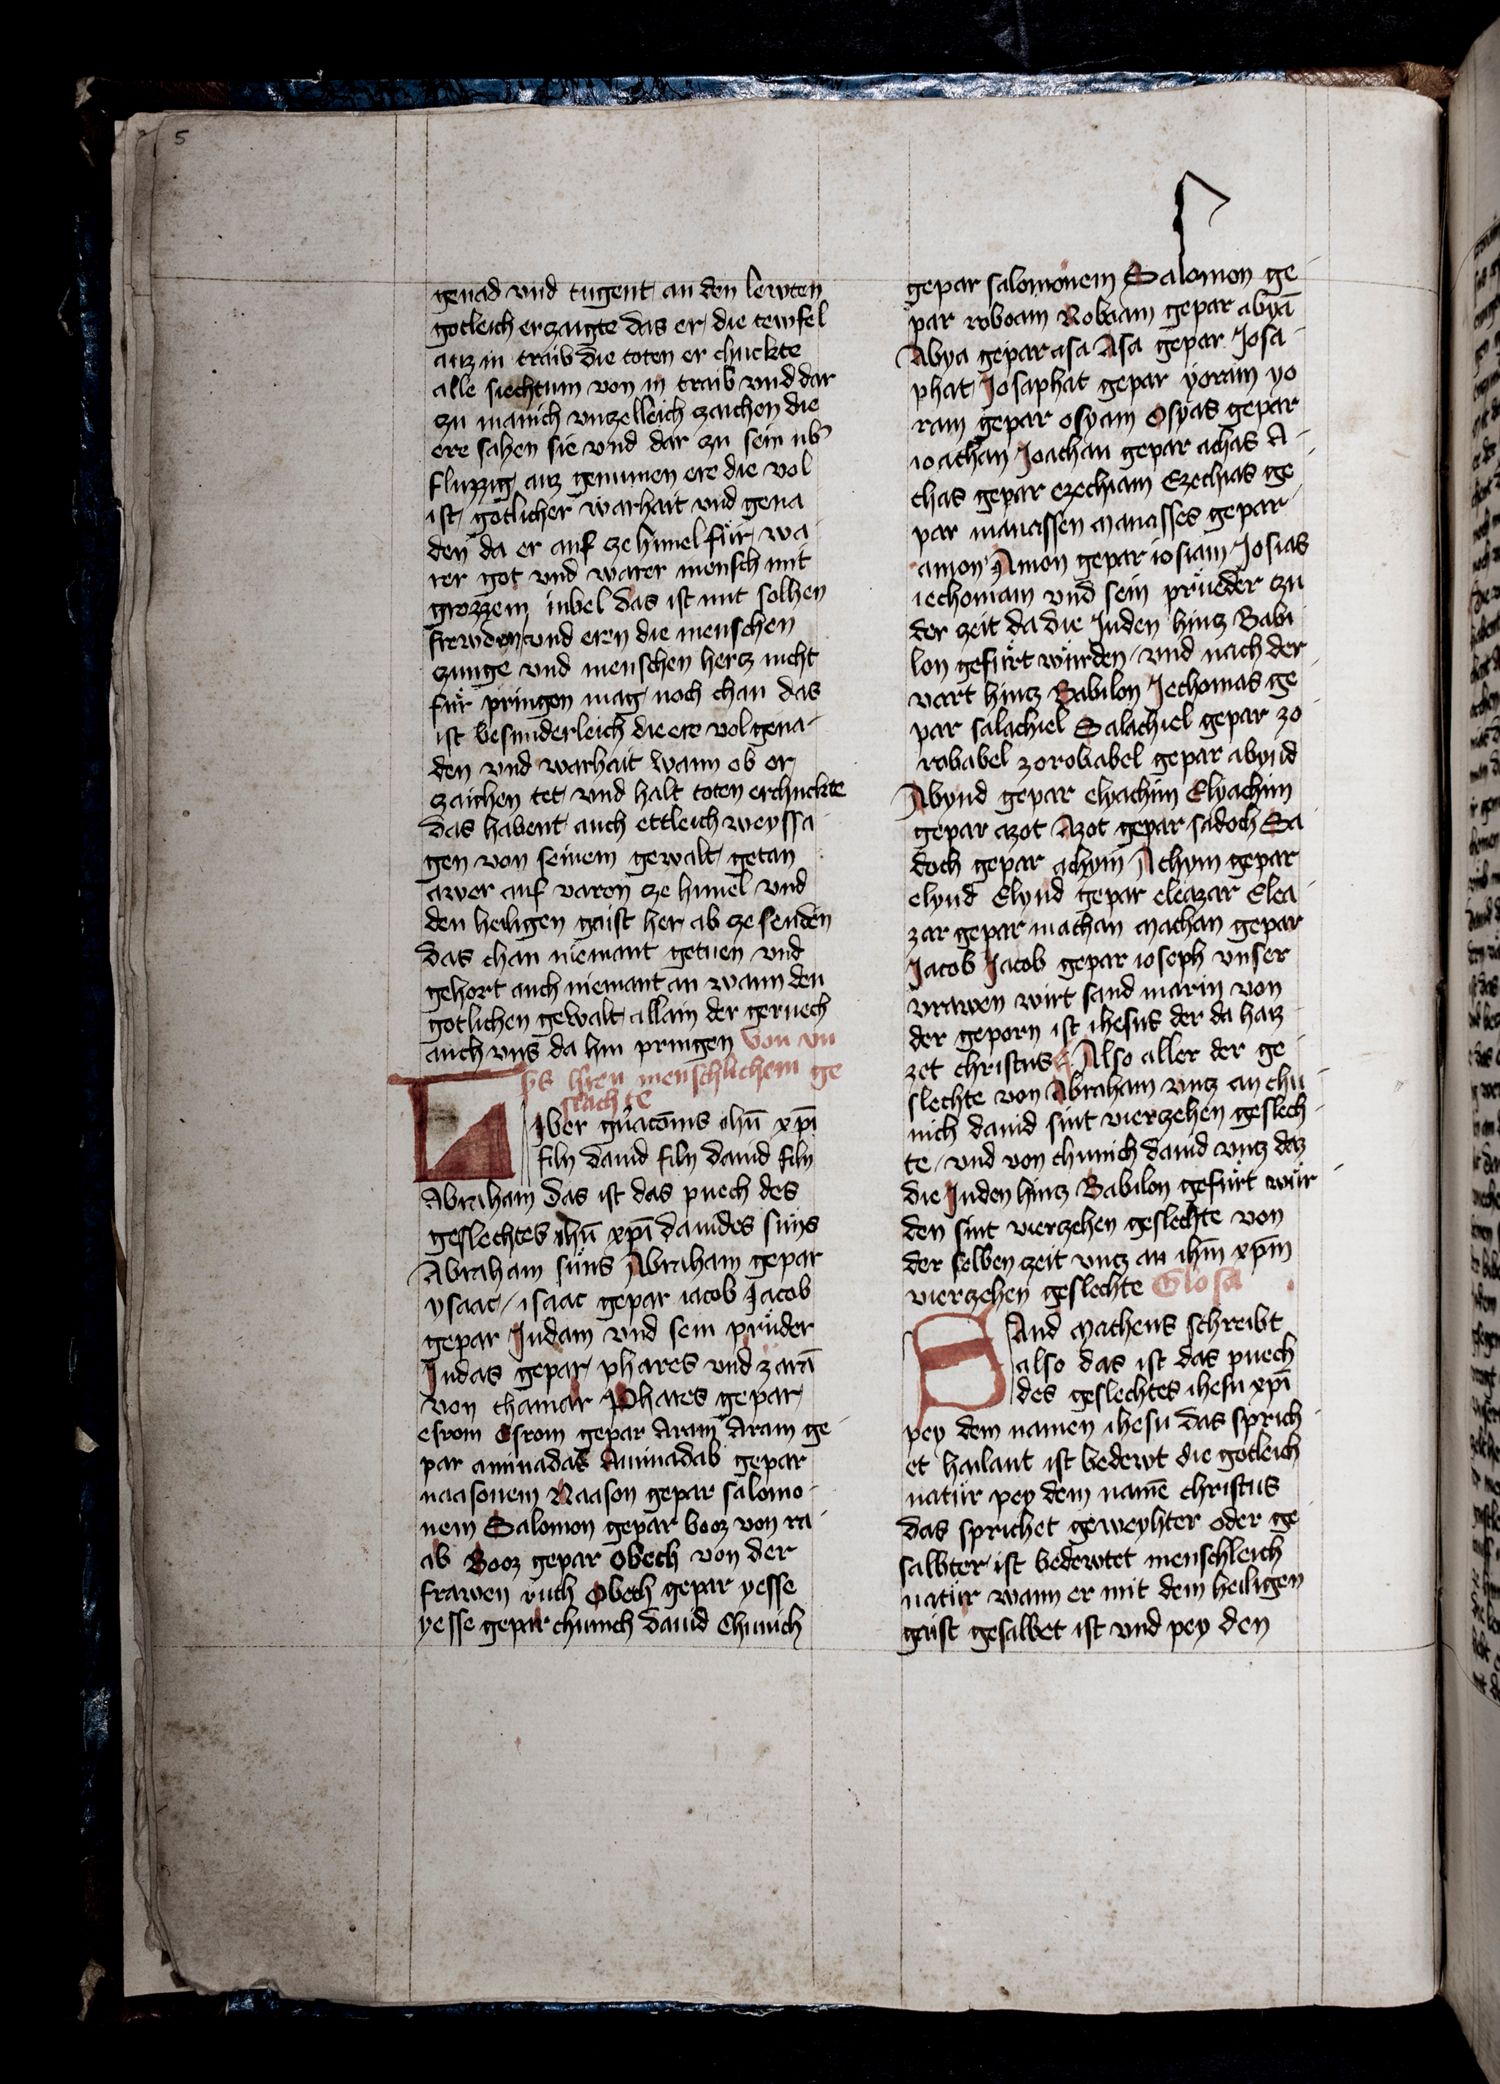 5
genad vnd tugent an den lewten
gotleich erzaigte das er die tewfel
auz in traib die toten er chuckte
alle siechtum von in traib vnd dar
zu manich vnzelleich zaichen die
ere sahen sie vnd dar zu sein vb̾
fluzzig auz genumen ere die vol
ist gotlicher warhait vnd gena
den da er auf ze himel fůr wa
rer got vnd warer mensch mit
grozzem iubel das ist mit solhen
frewden vnd eren die menschen
zunge vnd menschen hercz nicht
fůr pringen mag noch chan das
ist besunderleich die ere vol gena
den vnd warhait wann ob er
zaichen tet vnd halt toten erchuckte
das habent auch ettleich weyssa
gen von seinem gewalt getan
awer auf varen ze himel vnd
den heiligen gaist her ab ze senden
das chan niemant getuen vnd
gehort auch niemant an wann den
gotlichen gewalt allain der geruech
auch vns da hin pringen Von vn
sˢ hren menschlichem ge
slachte
Liber gnãcõnis ihũ xpĩ
filij dauid filij dauid filij
Abraham das ist das puech des
geslechtes ihũ xpĩ dauides suns
Abraham suns Abraham gepar
ysaac isaac gepar iacob Jacob
gepar Judam vnd sein průder
Judas gepar phares vnd zarã
von thamar Phares gepar
esrom Esrom gepar Aram Aram ge
par aminadab Aminadab gepar
naasonem Naason gepar salomo
nem Salomon gepar booz von ra
ab Booz gepar Obech von der
frawen ruth Obeth gepar yesse
yesse gepar chunich dauid Chunich
gepar salomonem Salomon ge
par roboam Roboam gepar abyã
Abya gepar asa Asa gepar Josa
phat Josaphat gepar yoram yo
ram gepar osyam Osyas gepar
ioathan Joachan gepar achas A
chas gepar ezechiam Ezechias ge
par manassen Manasses gepar
amon Amon gepar iosiam Josias
iechoniam vnd sein průeder zu
der zeit da die Juden hincz Babi
lon gefůrt wůrden vnd nach der
vart hincz Babilon Jechonias ge
par salachiel Salachiel gepar zo
robabel zorobabel gepar abyud
Abyud gepar elyachim Elyachim
gepar azot Azot gepar sadoch Sa
doch gepar achym Achym gepar
elyud Elyud gepar eleazar Elea
zar gepar mathan Mathan gepar
Jacob Jacob gepar ioseph vnser
vrawen wirt sand marin von
der geporn ist ihesus der da haiz
zet christus Also aller der ge
slechte von Abraham vncz an chu
nich dauid sint vierzehen geslech
te vnd von chunich dauid vncz daz
die Juden hincz Babilon gefůrt wůr
den sint vierzehen geslechte von
der selben zeit vncz an ihm̃ xpm̃
vierzehen geslechte Glosa
Sand Matheus schreibt
also das ist das puech
des geslechtes ihesu xpĩ
pey dem namen ihesu das sprich
et hailant ist bedewt die gotleich
natůr pey dem namẽ christus
das sprichet geweyhter oder ge
salbter ist bedewtet menschleich
natůr wann er mit dem heiligen
gaist gesalbet ist vnd pey den